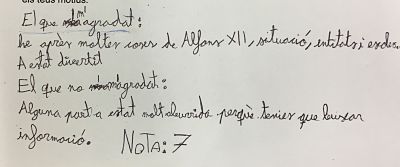 els teus motius.
El que m'ha agradat:
he après moltes coses de Alfons XII, situació, entitats i esdev.
A estat divertit
El que no m'ha agradat:
Alguna part a estat molt aburrida perquè tenies que buscar
informació. NOTA: 7